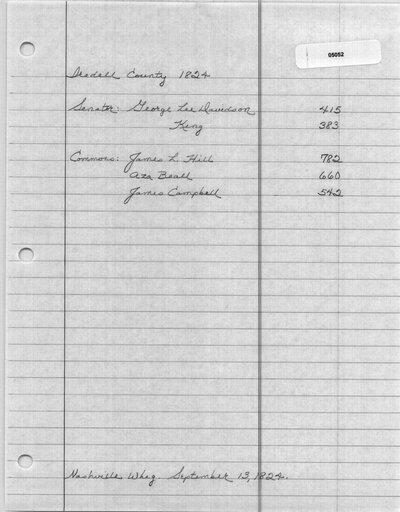 05052
Iredell County 1824
Senator: George Lee Davidson 415
King 383
Commons: James L. Hill 782
Aza Beall 660
James Campbell 542
Nashville Whig. September 13, 1824.